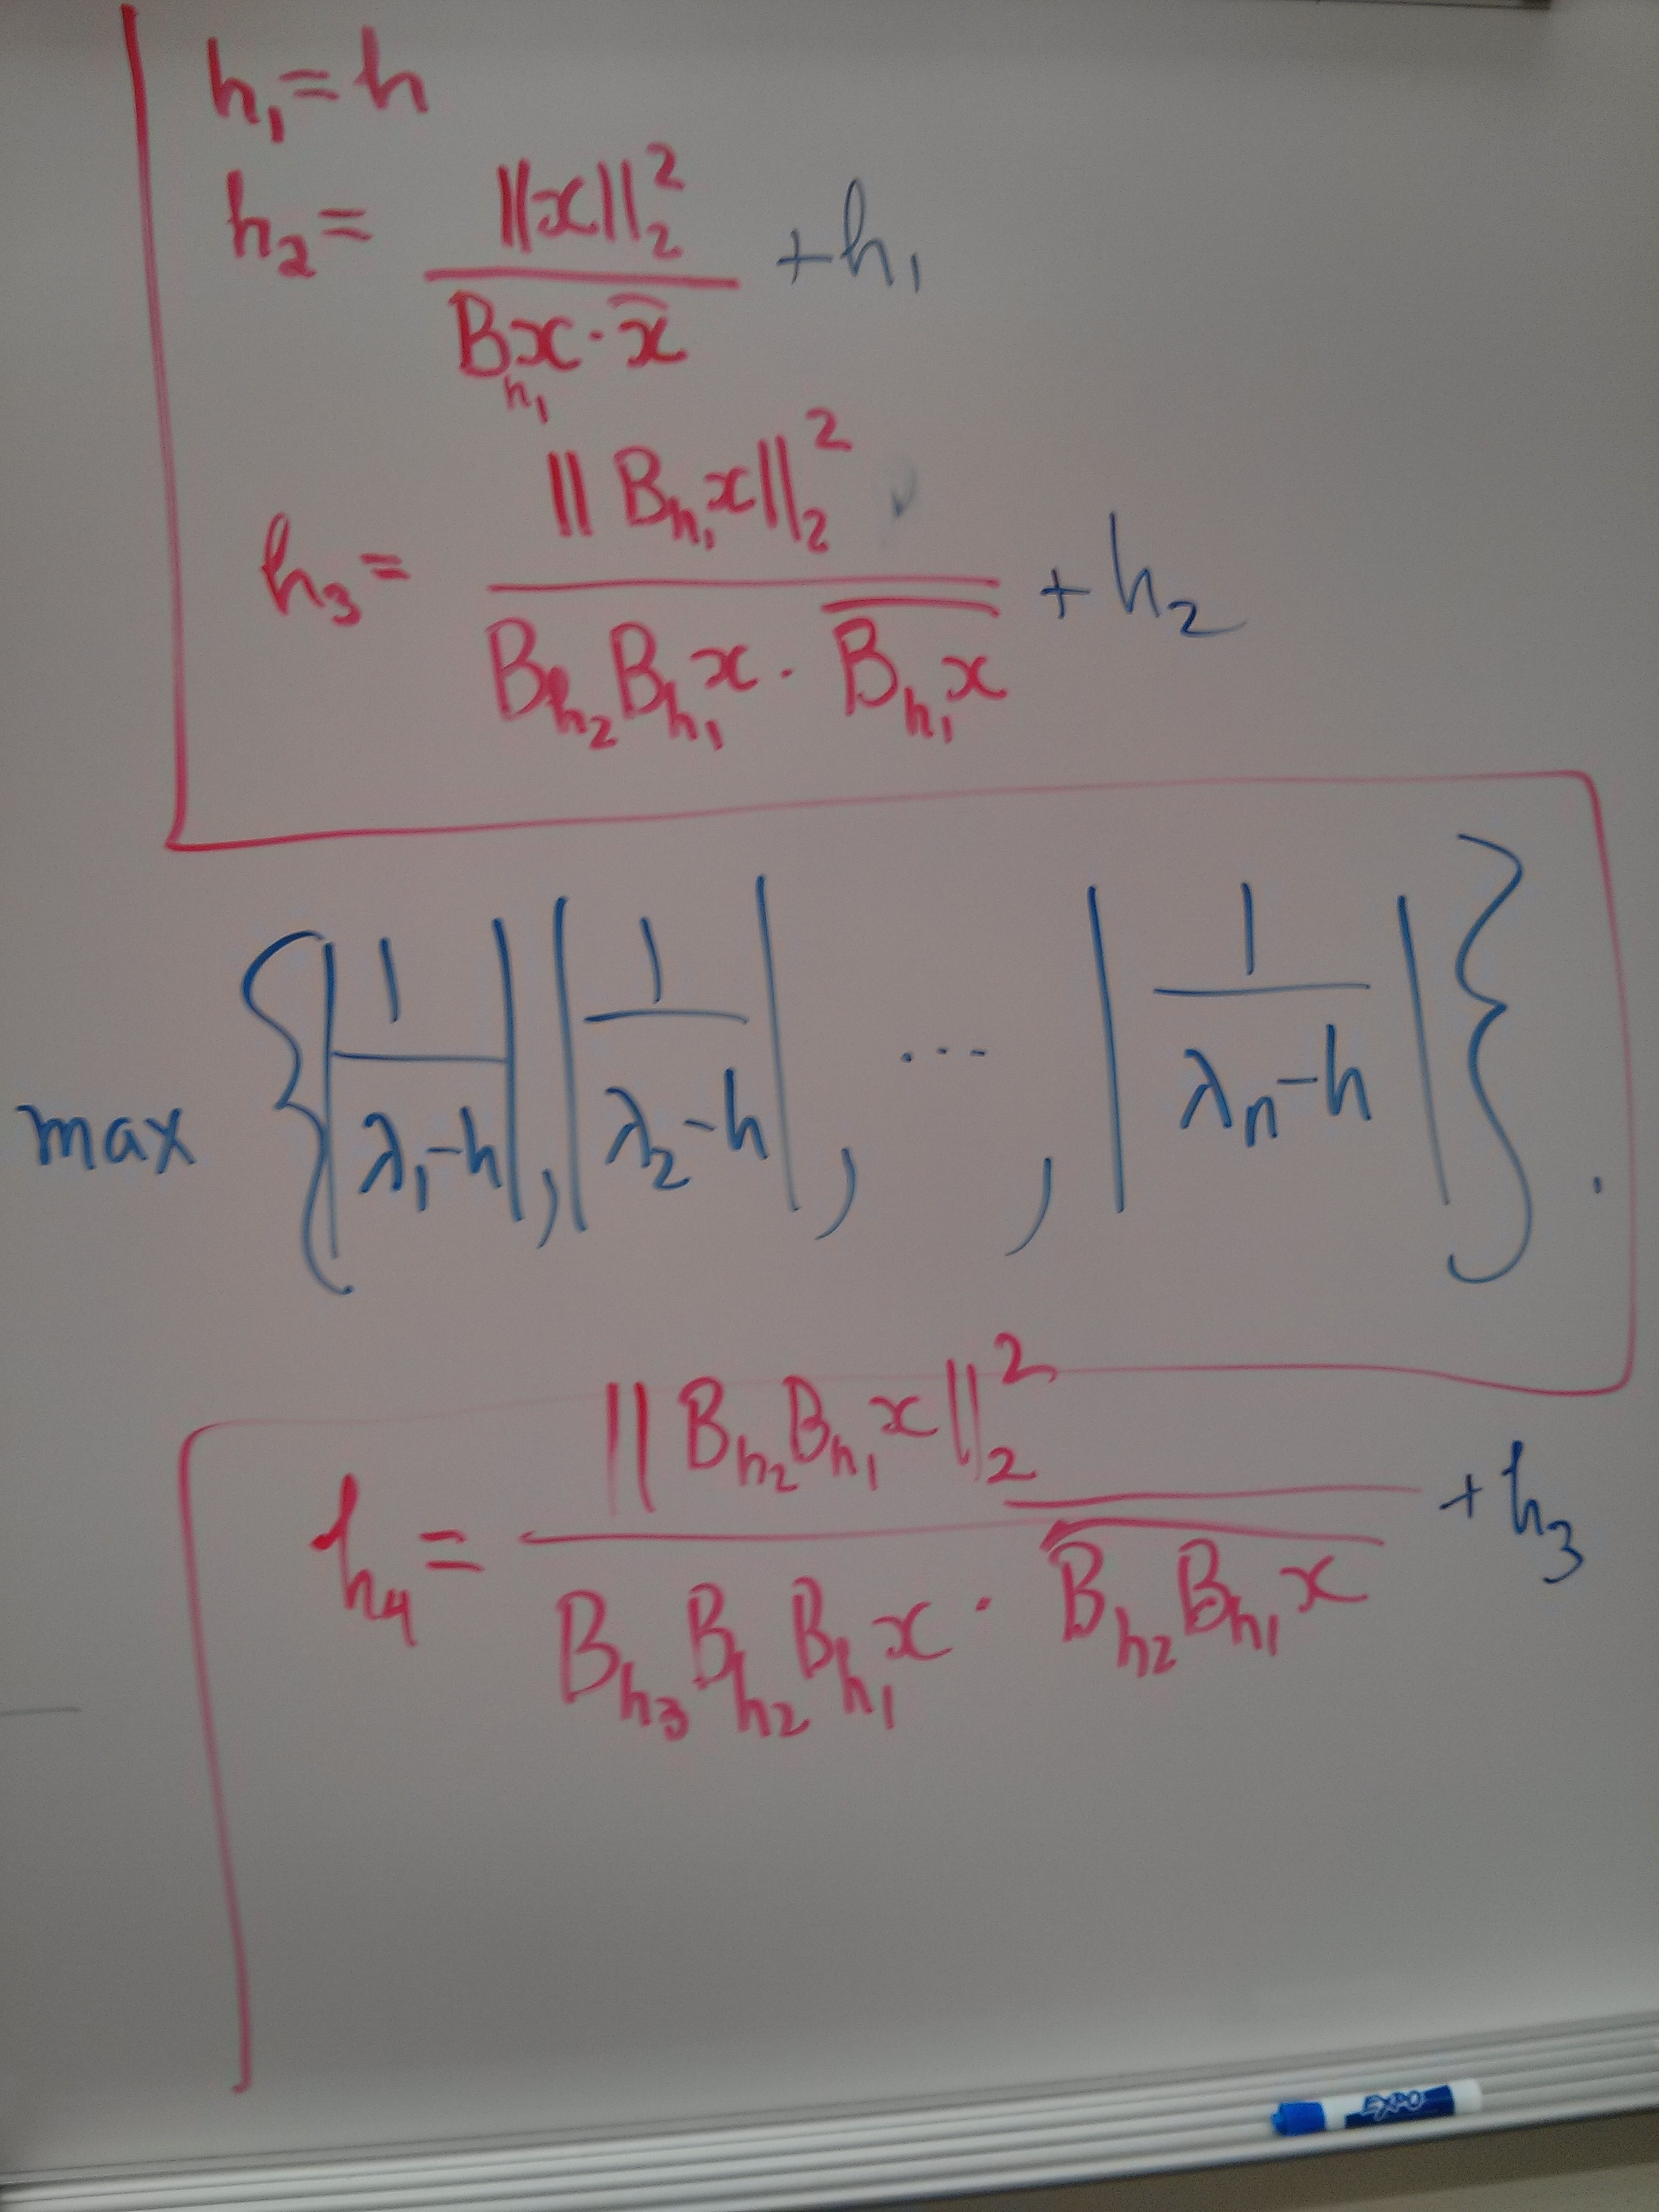 h₁ = h
h₂ = ‖x‖₂² / (B_{h₁}x · \overline{x}) + h₁
h₃ = ‖B_{h₁}x‖₂² / (B_{h₂}B_{h₁}x · \overline{B_{h₁}x}) + h₂
max { |1/(λ₁-h)|, |1/(λ₂-h)|, ..., |1/(λₙ-h)| }.
h₄ = ‖B_{h₂}B_{h₁}x‖₂² / (B_{h₃}B_{h₂}B_{h₁}x · \overline{B_{h₂}B_{h₁}x}) + h₃
EXPO